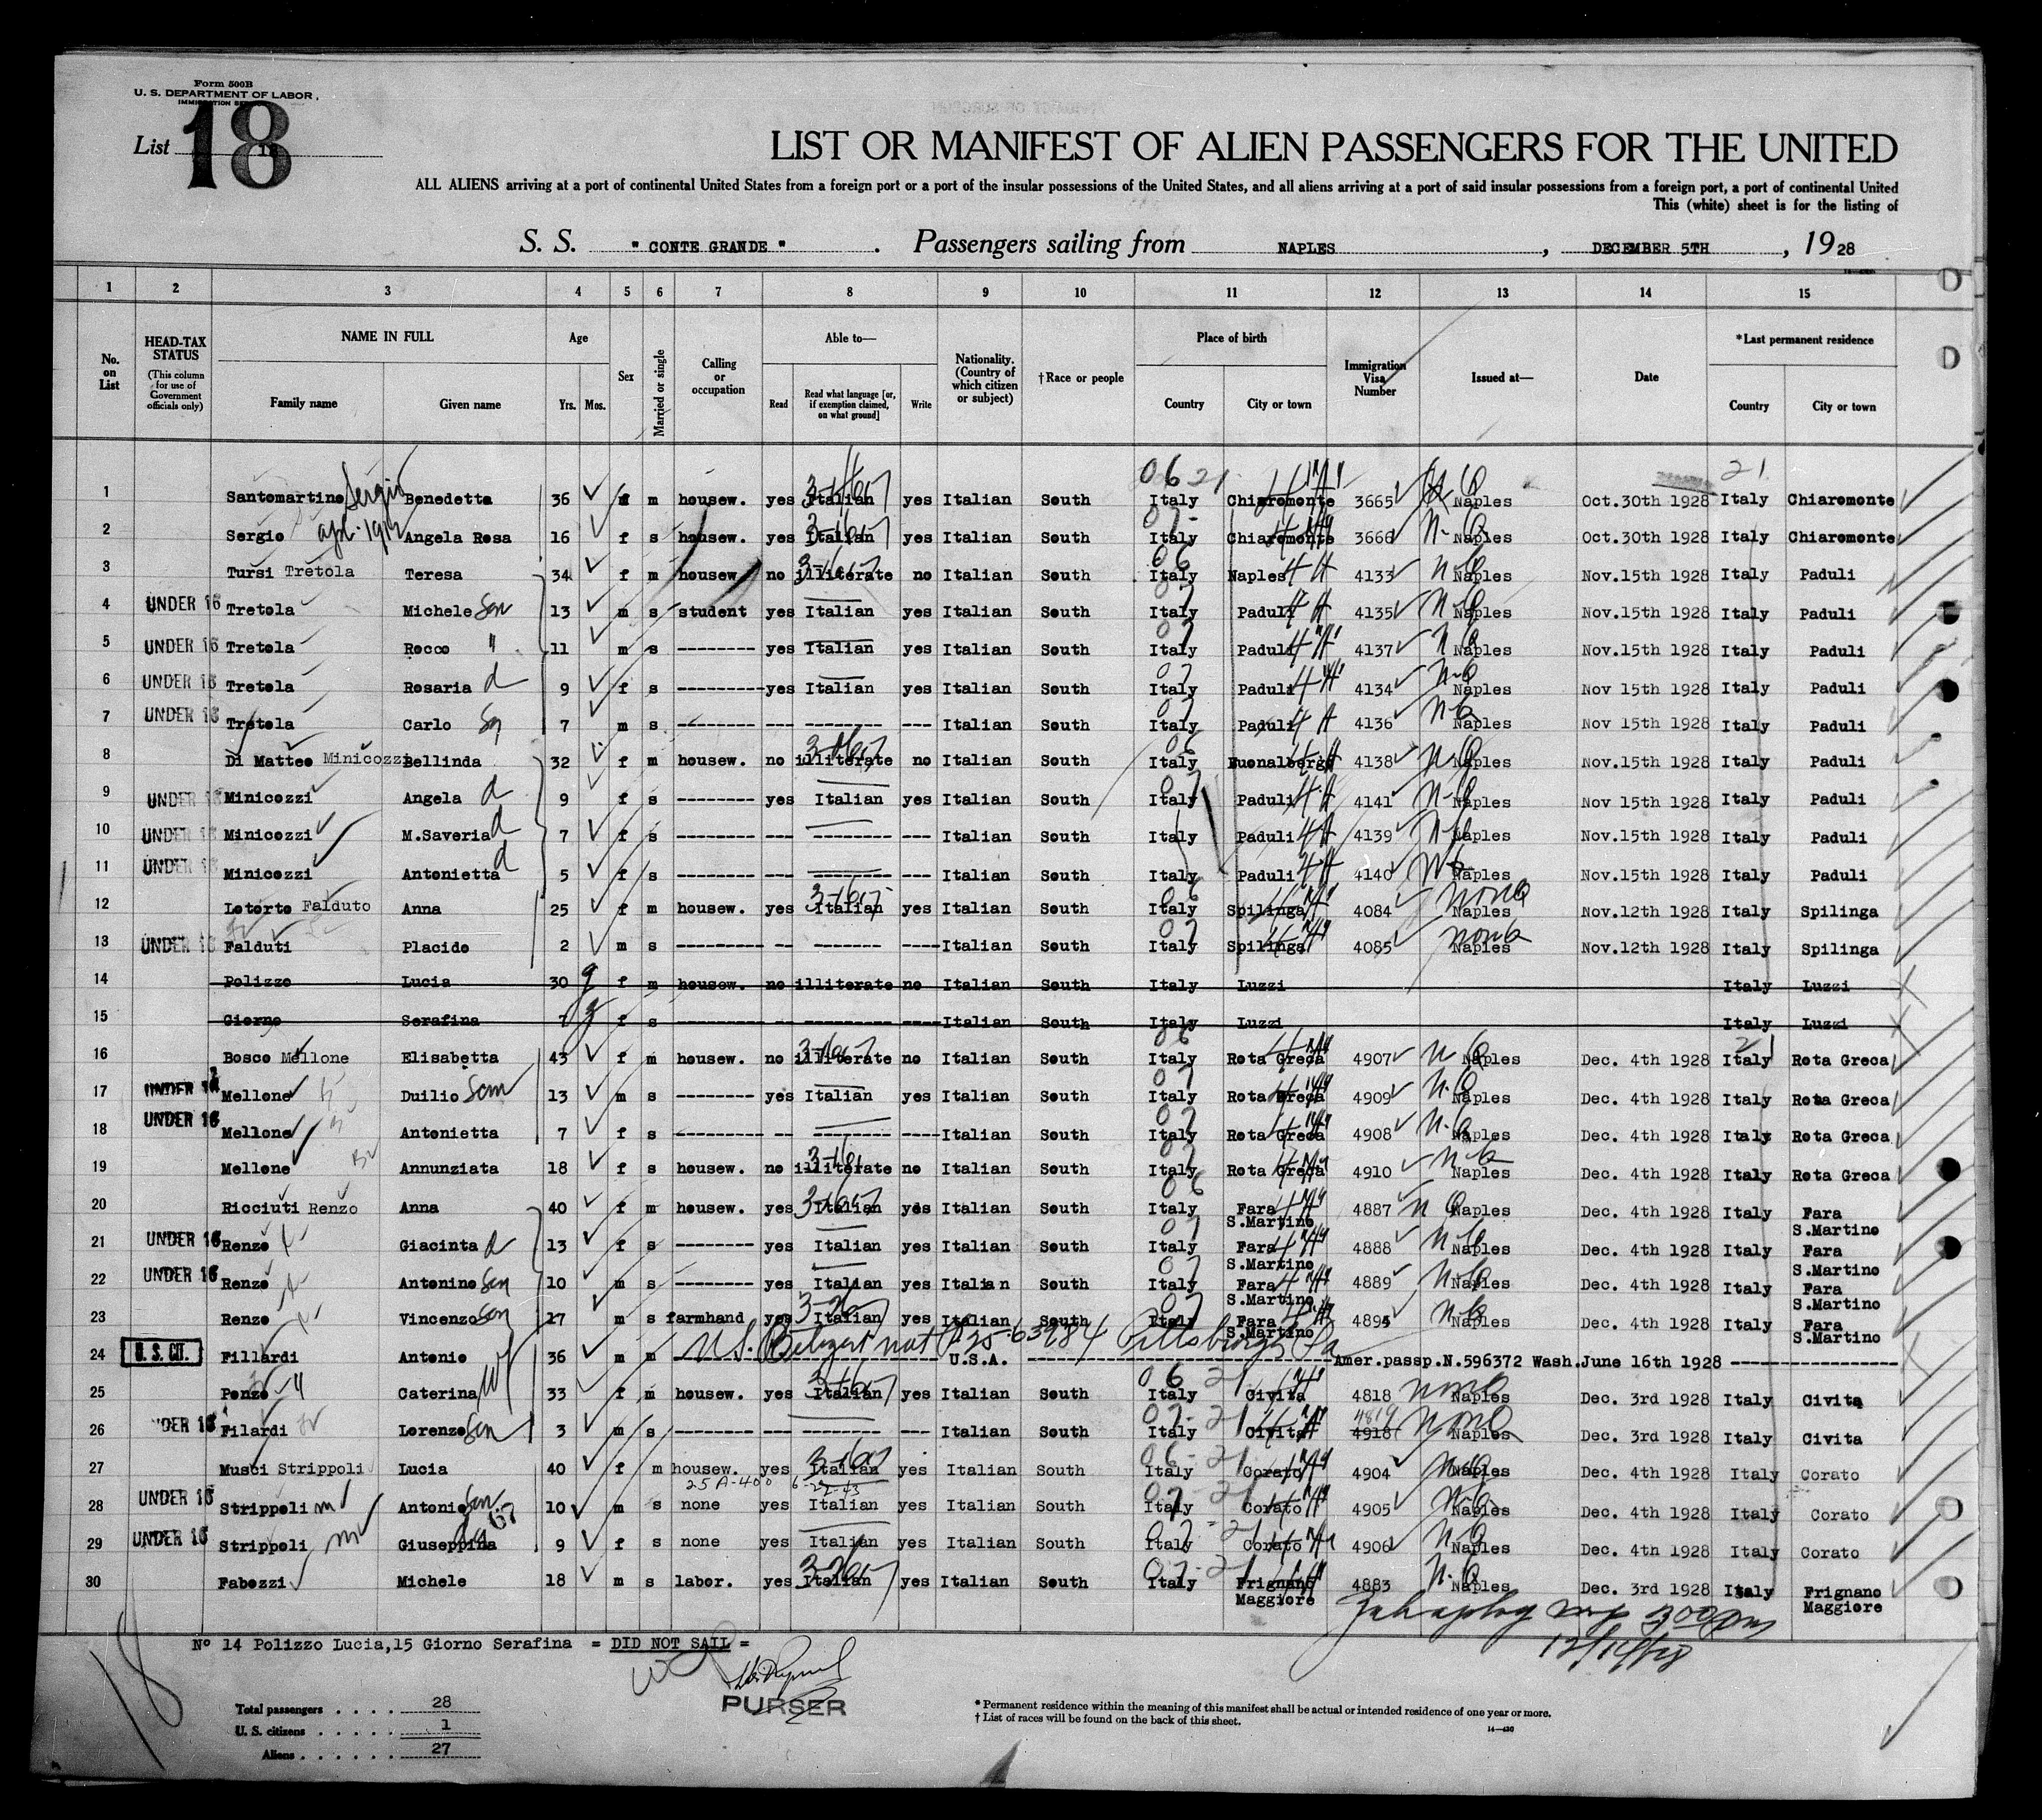 Form 500B
U. S. DEPARTMENT OF LABOR
List 18
LIST OR MANIFEST OF ALIEN PASSENGERS FOR THE UNITED
ALL ALIENS arriving at a port of continental United States from a foreign port or a port of the insular possessions of the United States, and all aliens arriving at a port of said insular possessions from a foreign port, a port of continental United
This (white) sheet is for the listing of
S. S. " CONTE GRANDE " . Passengers sailing from NAPLES , DECEMBER 5TH , 1928
1 2 3 4 5 6 7 8 9 10 11 12 13 14 15
No. on List
HEAD-TAX STATUS
(This column for use of Government officials only)
NAME IN FULL
Family name Given name
Age
Yrs. Mos.
Sex
Married or single
Calling or occupation
Able to—
Read
Read what language [or, if exemption claimed, on what ground]
Write
Nationality. (Country of which citizen or subject)
†Race or people
Place of birth
Country City or town
Immigration Visa Number
Issued at—
Date
*Last permanent residence
Country City or town
1 Santomartino Sergio Benedetta 36 f m housew. yes Italian yes Italian South Italy Chiaromonte 3665 Naples Oct.30th 1928 Italy Chiaromonte
2 Sergio Angela Rosa 16 f s housew. yes Italian yes Italian South Italy Chiaromonte 3666 Naples Oct.30th 1928 Italy Chiaromonte
3 Tursi Tretola Teresa 34 f m housew. no illiterate no Italian South Italy Naples 4133 Naples Nov.15th 1928 Italy Paduli
4 UNDER 16 Tretola Michele Son 13 m s student yes Italian yes Italian South Italy Paduli 4135 Naples Nov.15th 1928 Italy Paduli
5 UNDER 16 Tretola Rocco " 11 m s -------- yes Italian yes Italian South Italy Paduli 4137 Naples Nov.15th 1928 Italy Paduli
6 UNDER 16 Tretola Rosaria d 9 f s -------- yes Italian yes Italian South Italy Paduli 4134 Naples Nov 15th 1928 Italy Paduli
7 UNDER 16 Tretola Carlo Sn 7 m s -------- --- -------- --- Italian South Italy Paduli 4136 Naples Nov 15th 1928 Italy Paduli
8 Di Matteo Minicozzi Bellinda 32 f m housew. no illiterate no Italian South Italy Buonalbergo 4138 Naples Nov.15th 1928 Italy Paduli
9 UNDER 16 Minicozzi Angela d 9 f s -------- yes Italian yes Italian South Italy Paduli 4141 Naples Nov 15th 1928 Italy Paduli
10 UNDER 16 Minicozzi M.Saveria d 7 f s -------- --- -------- --- Italian South Italy Paduli 4139 Naples Nov.15th 1928 Italy Paduli
11 UNDER 16 Minicozzi Antonietta d 5 f s -------- --- -------- --- Italian South Italy Paduli 4140 Naples Nov.15th 1928 Italy Paduli
12 Loterto Falduto Anna 25 f m housew. yes Italian yes Italian South Italy Spilinga 4084 Naples Nov.12th 1928 Italy Spilinga
13 UNDER 16 Falduti Placido 2 m s -------- -- ------- ---- Italian South Italy Spilinga 4085 Naples Nov.12th 1928 Italy Spilinga
14 Polizzo Lucia 30 f m housew. no illiterate no Italian South Italy Luzzi Italy Luzzi
15 Giorno Serafina 7 f s -------- -- -------- ---- Italian South Italy Luzzi Italy Luzzi
16 Bosco Mellone Elisabetta 43 f m housew. no illiterate no Italian South Italy Rota Greca 4907 Naples Dec. 4th 1928 Italy Rota Greca
17 UNDER 16 Mellone Duilio Son 13 m s -------- yes Italian yes Italian South Italy Rota Greca 4909 Naples Dec. 4th 1928 Italy Rota Greca
18 UNDER 16 Mellone Antonietta 7 f s -------- -- -------- ---- Italian South Italy Rota Greca 4908 Naples Dec. 4th 1928 Italy Rota Greca
19 Mellone Annunziata 18 f s housew. no illiterate no Italian South Italy Rota Greca 4910 Naples Dec. 4th 1928 Italy Rota Greca
20 Ricciuti Renzo Anna 40 f m housew. yes Italian yes Italian South Italy Fara S.Martino 4887 Naples Dec. 4th 1928 Italy Fara S.Martino
21 UNDER 16 Renzo Giacinta d 13 f s -------- yes Italian yes Italian South Italy Fara S.Martino 4888 Naples Dec. 4th 1928 Italy Fara S.Martino
22 UNDER 16 Renzo Antonino Son 10 m s -------- yes Italian yes Italian South Italy Fara S.Martino 4889 Naples Dec. 4th 1928 Italy Fara S.Martino
23 Renzo Vincenzo Son 17 m s farmhand yes Italian yes Italian South Italy Fara S.Martino 4895 Naples Dec. 4th 1928 Italy Fara S.Martino
24 U. S. CIT. Fillardi Antonio 36 m m U.S. Pittsburgh Pa U.S.A. Amer.passp.N.596372 Wash.June 16th 1928
25 Ponzo Caterina W 33 f m housew. yes Italian yes Italian South Italy Civita 4818 Naples Dec. 3rd 1928 Italy Civita
26 DER 16 Filardi Lorenzo Son 3 m s -------- -- -------- --- Italian South Italy Civita 4918 4819 Naples Dec. 3rd 1928 Italy Civita
27 Musci Strippoli Lucia 40 f m housew. yes Italian yes Italian South Italy Corato 4904 Naples Dec. 4th 1928 Italy Corato
28 UNDER 16 Strippoli Antonio Son 10 m s none yes Italian yes Italian South Italy Corato 4905 Naples Dec. 4th 1928 Italy Corato
29 UNDER 16 Strippoli Giuseppina 9 f s none yes Italian yes Italian South Italy Corato 4906 Naples Dec. 4th 1928 Italy Corato
30 Fabozzi Michele 18 m s labor. yes Italian yes Italian South Italy Frignano Maggiore 4883 Naples Dec. 3rd 1928 Italy Frignano Maggiore
Nº 14 Polizzo Lucia,15 Giorno Serafina = DID NOT SAIL =
PURSER
Total passengers . . . . 28
U. S. citizens . . . . . 1
Aliens . . . . . . 27
* Permanent residence within the meaning of this manifest shall be actual or intended residence of one year or more.
† List of races will be found on the back of this sheet.
18